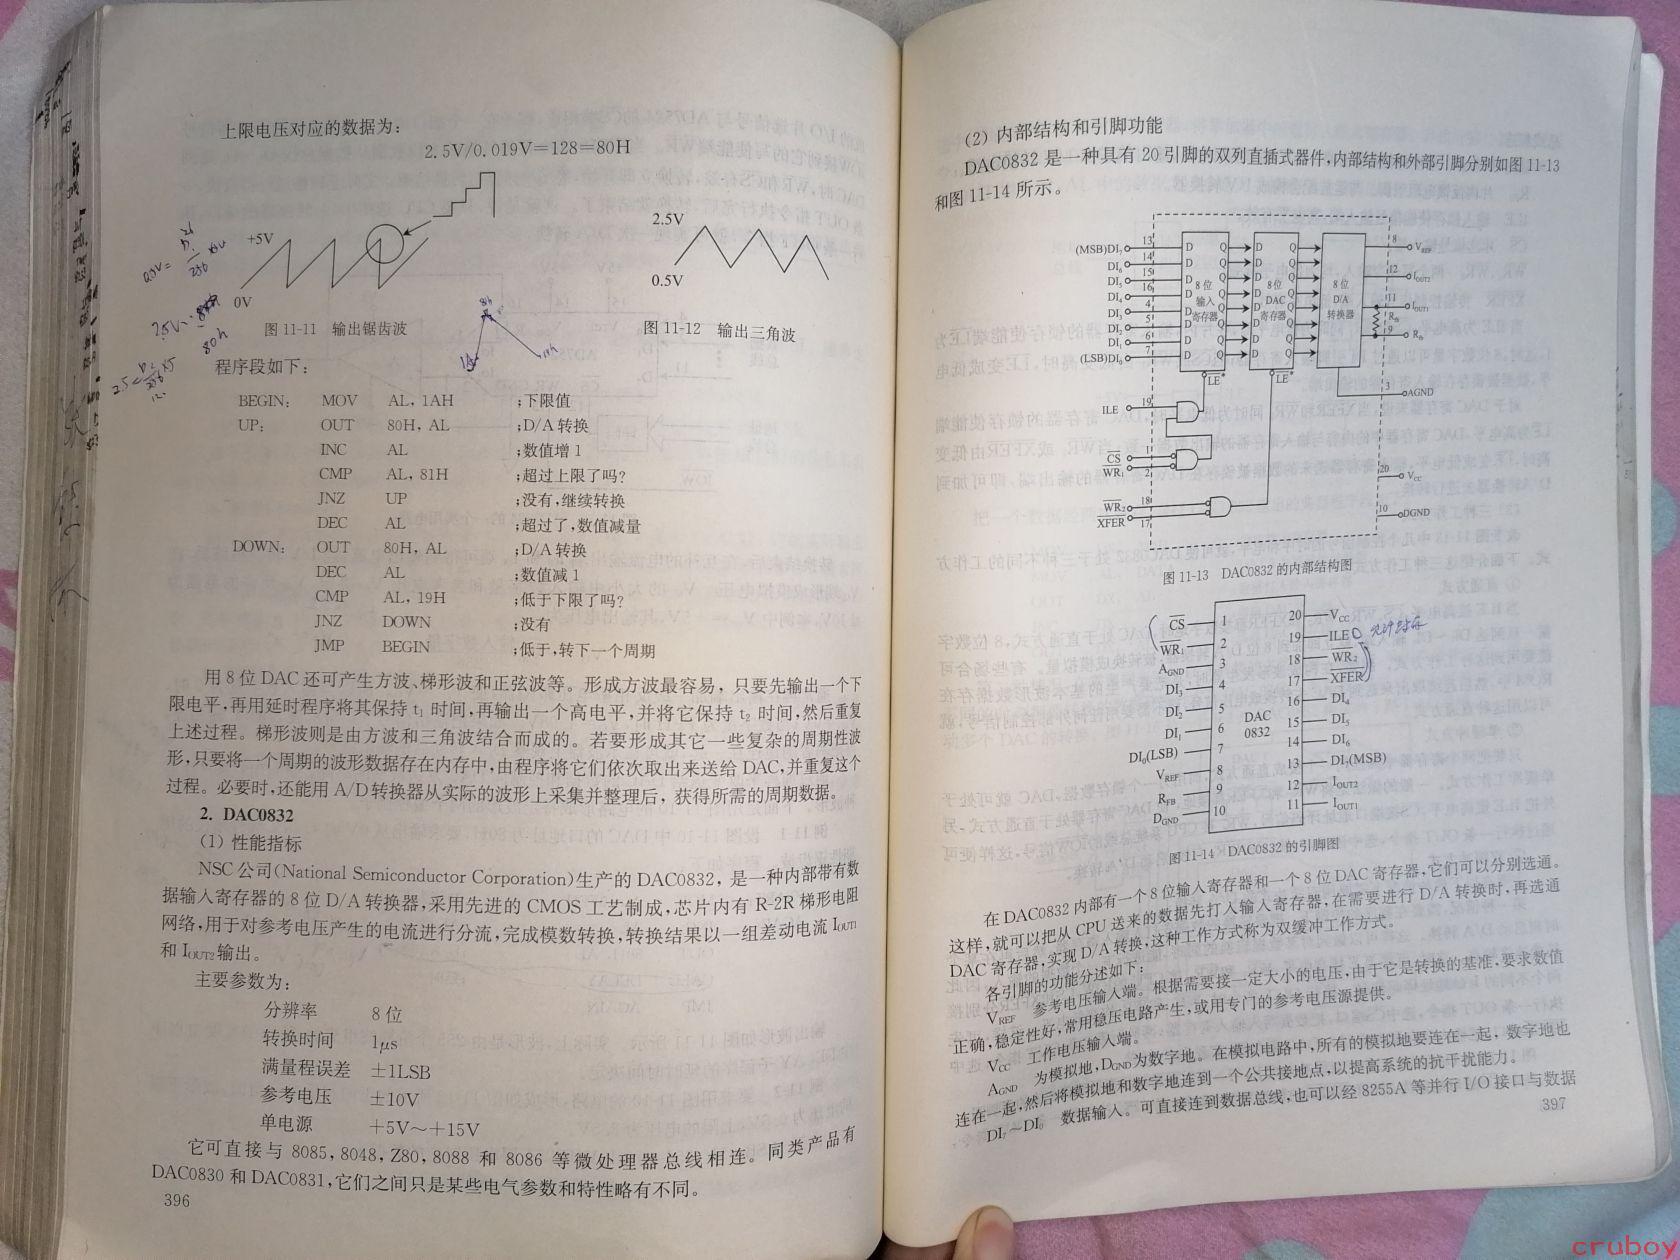 上限电压对应的数据为:
2.5V/0.019V=128=80H
+5V
0V
图 11-11 输出锯齿波
2.5V
0.5V
图 11-12 输出三角波
程序段如下:
BEGIN: MOV AL, 1AH ;下限值
UP: OUT 80H, AL ;D/A 转换
INC AL ;数值增 1
CMP AL, 81H ;超过上限了吗?
JNZ UP ;没有,继续转换
DEC AL ;超过了,数值减量
DOWN: OUT 80H, AL ;D/A 转换
DEC AL ;数值减 1
CMP AL, 19H ;低于下限了吗?
JNZ DOWN ;没有
JMP BEGIN ;低于,转下一个周期
用 8 位 DAC 还可产生方波、梯形波和正弦波等。形成方波最容易，只要先输出一个下
限电平,再用延时程序将其保持 t₁ 时间,再输出一个高电平,并将它保持 t₂ 时间,然后重复
上述过程。梯形波则是由方波和三角波结合而成的。若要形成其它一些复杂的周期性波
形,只要将一个周期的波形数据存在内存中,由程序将它们依次取出来送给 DAC,并重复这个
过程。必要时,还能用 A/D 转换器从实际的波形上采集并整理后，获得所需的周期数据。
2. DAC0832
(1) 性能指标
NSC 公司(National Semiconductor Corporation)生产的 DAC0832，是一种内部带有数
据输入寄存器的 8 位 D/A 转换器,采用先进的 CMOS 工艺制成,芯片内有 R-2R 梯形电阻
网络,用于对参考电压产生的电流进行分流,完成模数转换,转换结果以一组差动电流 IOUT1
和 IOUT2 输出。
主要参数为:
分辨率 8 位
转换时间 1μs
满量程误差 ±1LSB
参考电压 ±10V
单电源 +5V～+15V
它可直接与 8085, 8048, Z80, 8088 和 8086 等微处理器总线相连。同类产品有
DAC0830 和 DAC0831,它们之间只是某些电气参数和特性略有不同。
396
(2) 内部结构和引脚功能
DAC0832 是一种具有 20 引脚的双列直插式器件,内部结构和外部引脚分别如图 11-13
和图 11-14 所示。
(MSB)DI₇ 13
DI₆ 14
DI₅ 15
DI₄ 16
DI₃ 4
DI₂ 5
DI₁ 6
(LSB)DI₀ 7
8 位 输入 寄存器
8 位 DAC 寄存器
8 位 D/A 转换器
8 VREF
12 IOUT2
11 IOUT1
Rfb
9 Rfb
3 AGND
LE LE
ILE 19
CS 1
WR₁ 2
WR₂ 18
XFER 17
20 VCC
10 DGND
图 11-13 DAC0832 的内部结构图
CS 1 20 VCC
WR₁ 2 19 ILE
AGND 3 18 WR₂
DI₃ 4 17 XFER
DI₂ 5 16 DI₄
DI₁ 6 15 DI₅
DI₀(LSB) 7 14 DI₆
VREF 8 13 DI₇(MSB)
RFB 9 12 IOUT2
DGND 10 11 IOUT1
DAC
0832
图 11-14 DAC0832 的引脚图
在 DAC0832 内部有一个 8 位输入寄存器和一个 8 位 DAC 寄存器,它们可以分别选通。
这样,就可以把从 CPU 送来的数据先打入输入寄存器,在需要进行 D/A 转换时,再选通
DAC 寄存器,实现 D/A 转换,这种工作方式称为双缓冲工作方式。
各引脚的功能分述如下:
VREF 参考电压输入端。根据需要接一定大小的电压,由于它是转换的基准,要求数值
正确,稳定性好,常用稳压电路产生,或用专门的参考电压源提供。
VCC 工作电压输入端。
AGND 为模拟地,DGND为数字地。在模拟电路中,所有的模拟地要连在一起，数字地也
连在一起,然后将模拟地和数字地连到一个公共接地点,以提高系统的抗干扰能力。
DI₇～DI₀ 数据输入。可直接连到数据总线,也可以经 8255A 等并行 I/O 接口与数据
397
cruboy